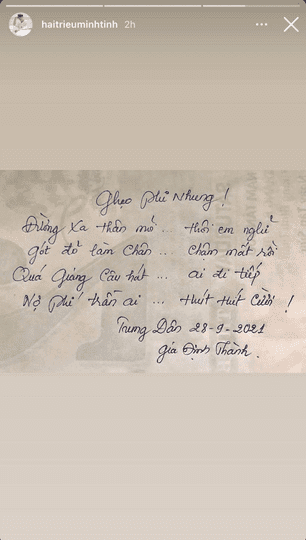 haitrieuminhtinh 2h
Ghẹo Phi Nhung !
Đường Xa thân mỏi ... thôi em nghỉ
gót đỏ lầm Chân ... Chậm mất rồi
Quá Giang Câu hát ... ai đi tiếp
Nợ Phí trần ai ... Hut Hut Cười !
Trung Dân 28-9-2021
Gia Định Thành.